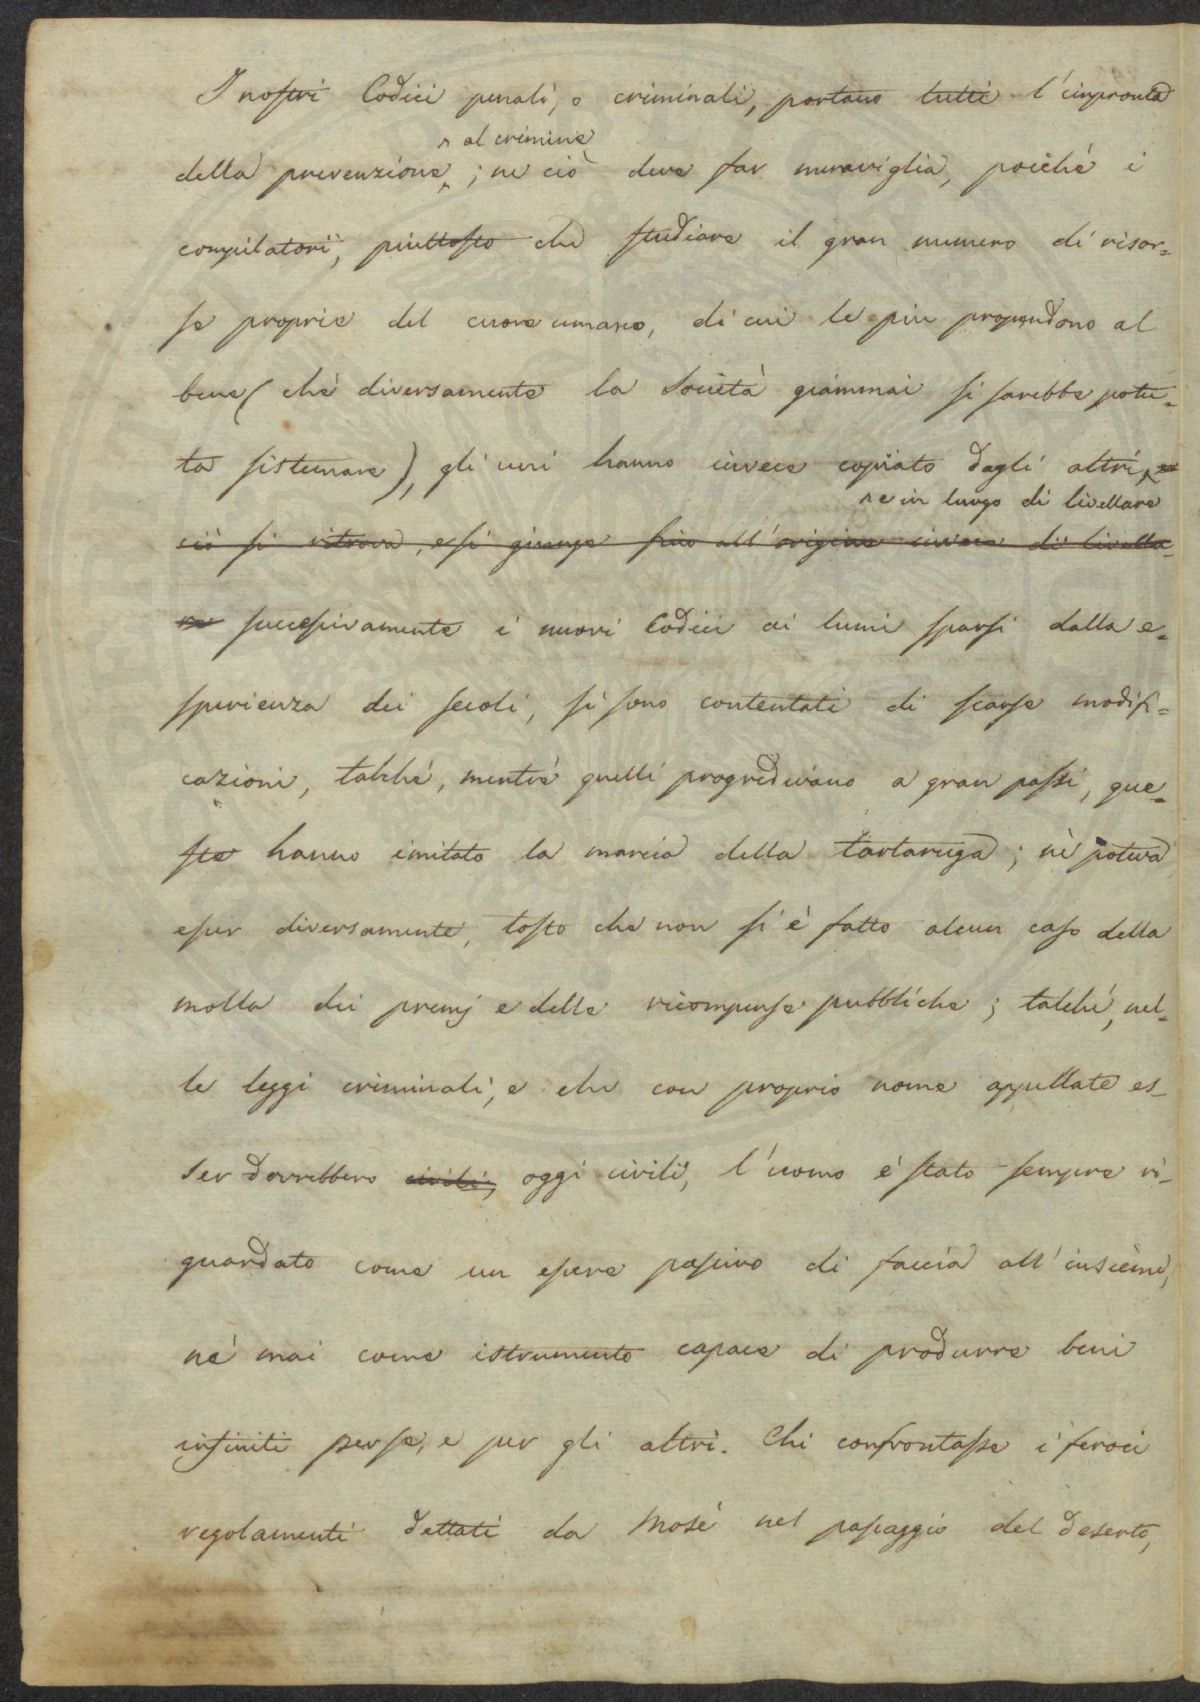 I nostri Codici penali, o criminali, portano tutti l'impronta
al crimine
della prevenzione; ne ciò deve far meraviglia, poiché i
compilatori, piuttosto che studiare il gran numero di risor=
se proprie del cuore umano, di cui le più propendono al
bene (chè diversamente la Società giammai si sarebbe potu=
ta sistemare), gli uni hanno invece copiato dagli altri, e
e in luogo di livellare
ciò si ritrova, e si giunge fino all'origine invece di livella=
re successivamente i nuovi Codici ai lumi sparsi dalla e=
sperienza dei secoli, si sono contentati di scarse modifi=
cazioni, talché, mentre quelli progredivano a gran passi, que=
ste hanno imitato la marcia della tartaruga; nè poteva
esser diversamente, tosto che non si è fatto alcun caso della
molla dei premj e delle ricompense pubbliche; talché, nel=
le leggi criminali, e che con proprio nome appellate es=
ser dovrebbero civili, oggi civili, l'uomo è stato sempre ri=
guardato come un essere passivo di faccia all'insieme,
né mai come istrumento capace di produrre beni
infiniti per se, e per gli altri. Chi confrontasse i feroci
regolamenti dettati da Mosé nel passaggio del deserto,